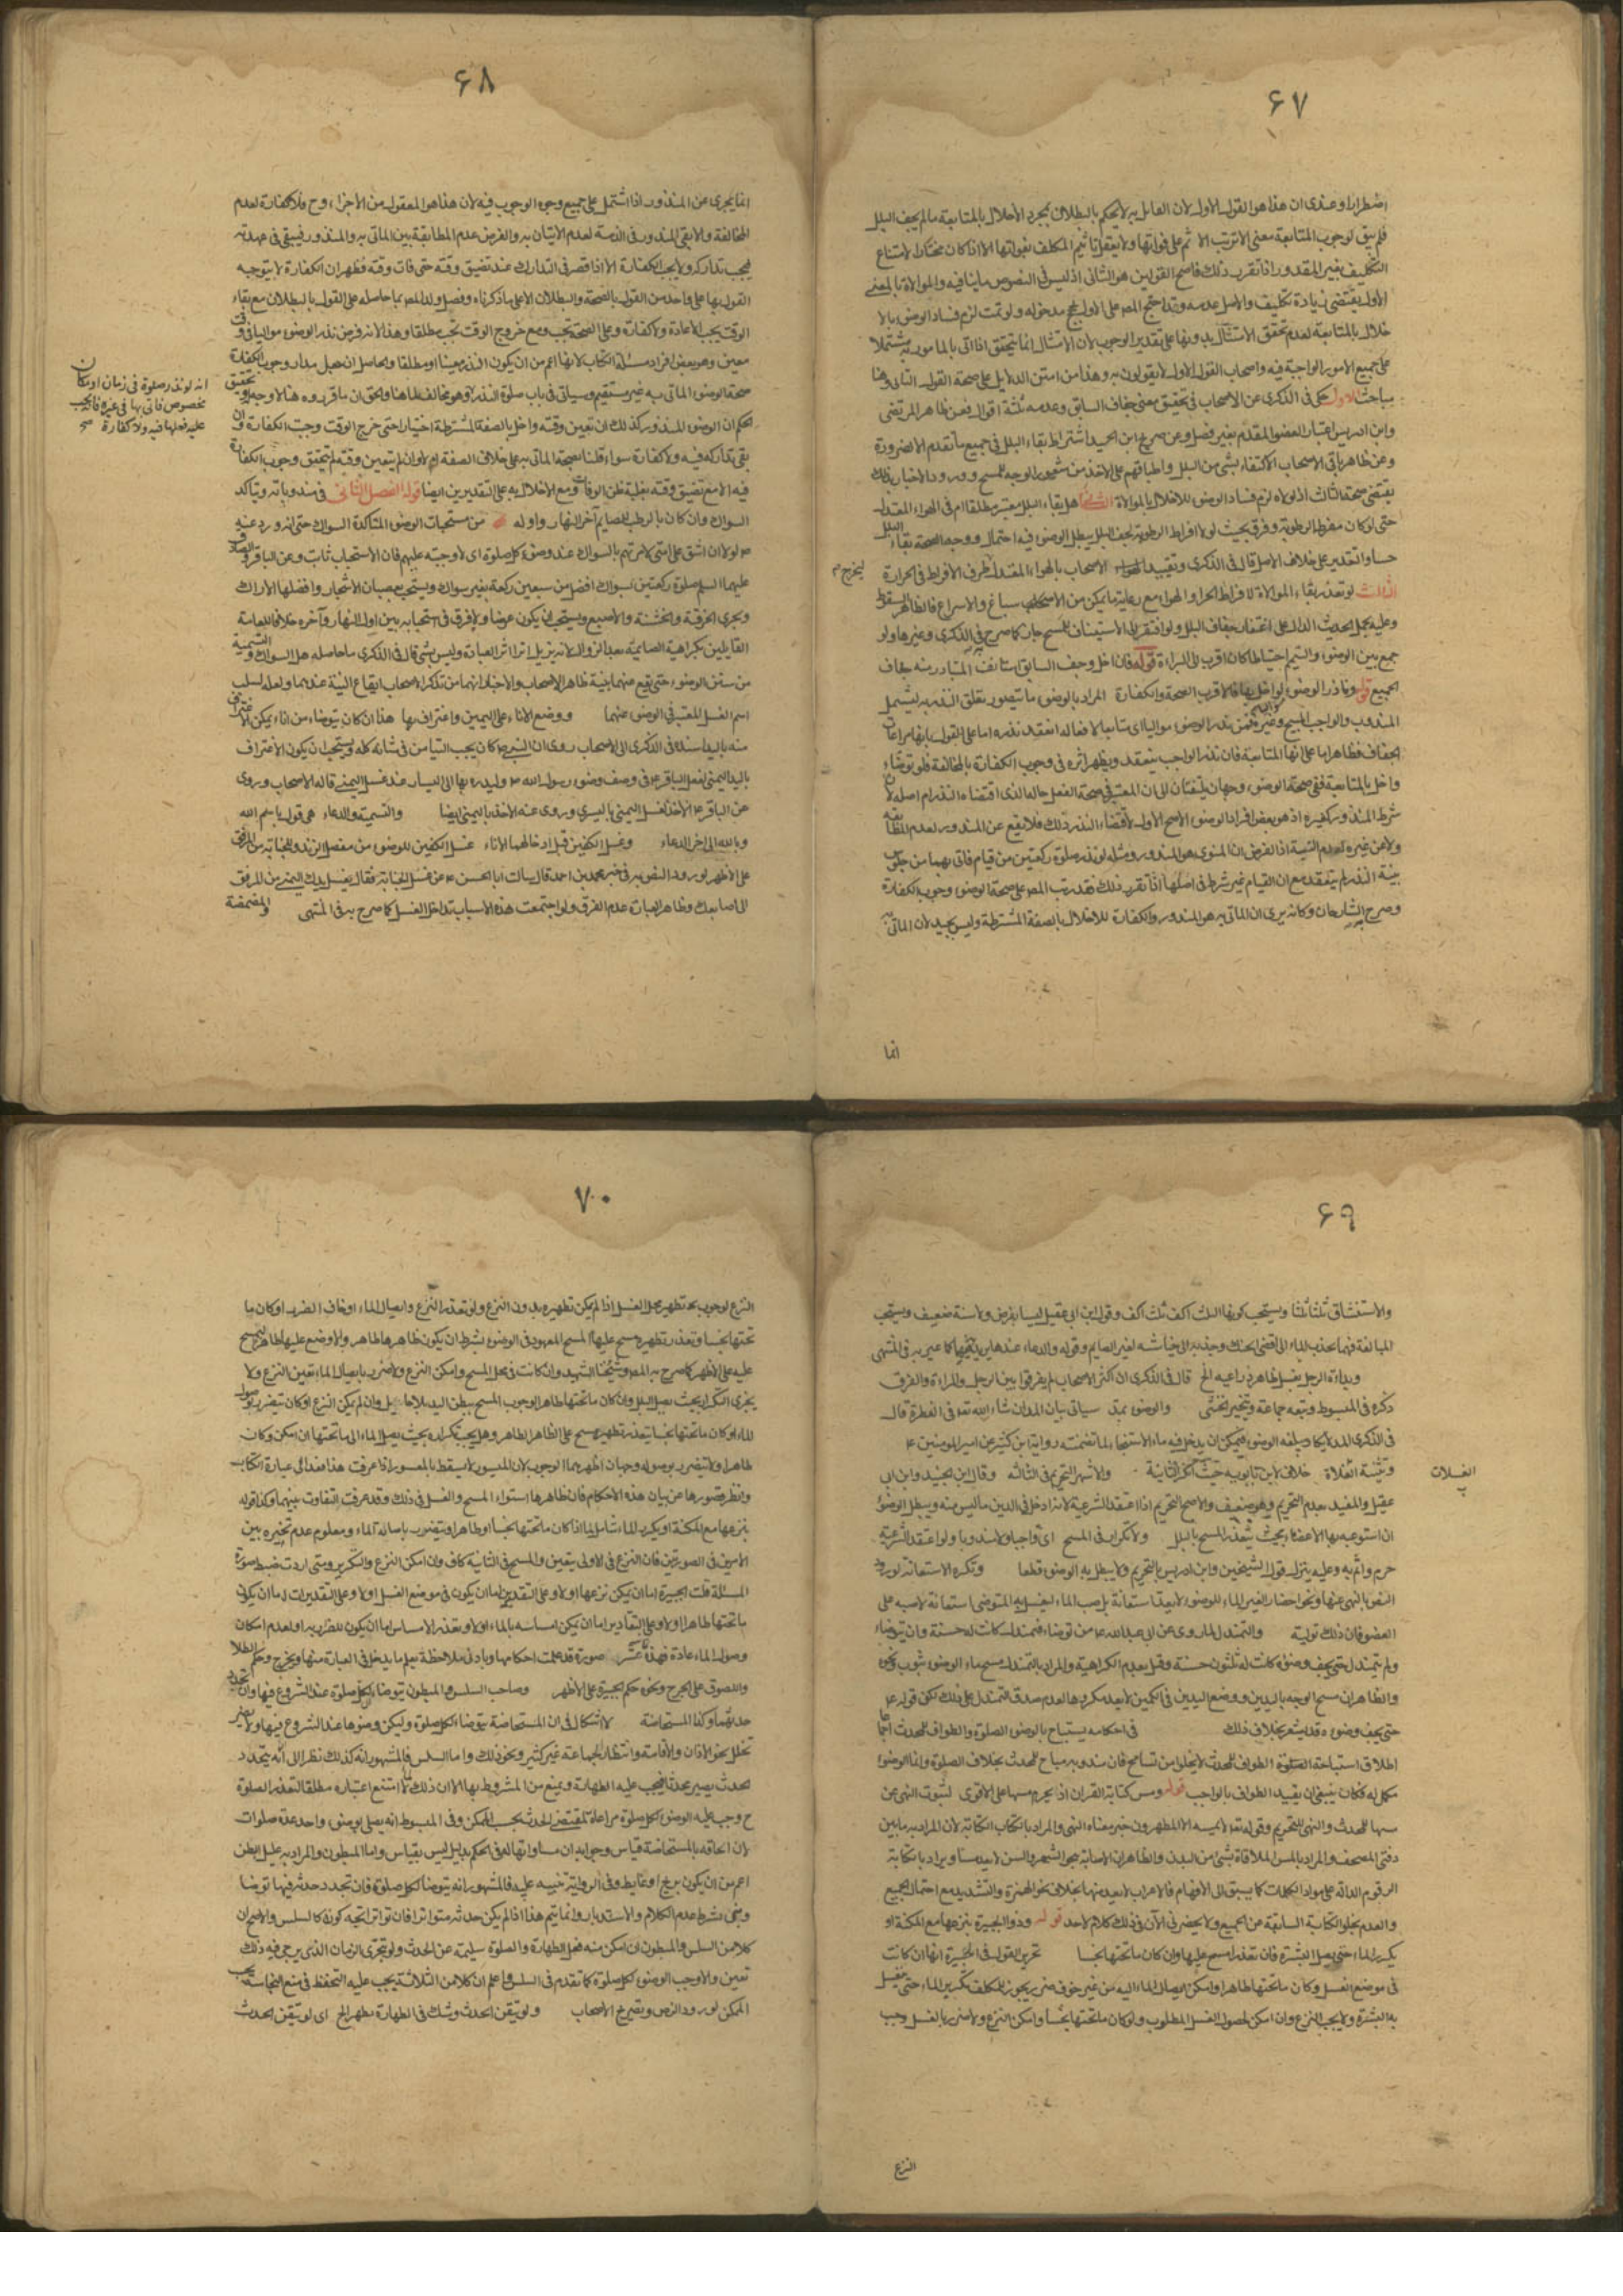 ۶۷
اضطرارا وعندى ان هذا هو القول الاول لان القائل به لا يحكم بالبطلان بمجرد الاخلال بالمتابعة ما لم يجف البلل
فلم يبق لوجوب المتابعة معنى الا ترتب الاثم على فواتها ولا يعقل تأثيم المكلف بفواتها الا اذا كان مختارا لامتناع
التكليف بغير المقدور اذا تقرر ذلك فاصح القولين هو الثانى اذ ليس فى النصوص ما ينافيه والموالاة بالمعنى
الاول يقتضى زيادة تكليف والاصل عدمه وقد احتج المص على الاول بحجج مدخوله ولو تمت لزم فساد الوضوء بالا
خلال بالمتابعة لعدم تحقق الامتثال بدونها على تقدير الوجوب لان الامتثال انما يتحقق اذا اتى بالمامور به مشتملا
على جميع الامور الواجبة فيه واصحاب القول الاول لا يقولون به وهذا من امتن الدلايل على صحة القول الثانى وهنا
مباحث الاول حكى فى الذكرى عن الاصحاب فى تحقيق معنى جفاف السابق وعدمه ثلثة اقوال فعن ظاهر المرتضى
وابن ادريس اعتبار العضو المقدم بغير فصل وعن صريح ابن الجنيد اشتراط بقاء البلل فى جميع ما تقدم الا ضرورة
وعن ظاهر باقى الاصحاب الاكتفاء بشئ من البلل واطباقهم على الاخذ من شعور الوجه للمسح وورود الاخبار بذلك
يقتضى صحة الثالث اذ لولاه لزم فساد الوضوء للاخلال بالموالاة الثانى هل بقاء البلل معتبر مطلقا ام فى الهواء المعتدل
حتى لو كان مفرط الرطوبة وفرق بحيث لولا افراط الرطوبة لجف البلل يبطل الوضوء فيه احتمال ووجه الصحة بقاء البلل
حسا والتقدير على خلاف الاصل قال فى الذكرى وتقييد الاصحاب بالهواء المعتدل ليخرج طرف الافراط فى الحرارة
الثالث لو تعذر بقاء الموالاة لافراط الحر او الهواء مع رعاية ما يمكن من الاسباغ والاسراع فالظاهر السقوط
وعليه يحمل الحديث الدال على اغتفار جفاف البلل ولو افتقر الى الاستيناف للمسح جاز كما صرح به فى الذكرى وغيرها ولو
جمع بين الوضوء والتيمم احتياطا كان اقرب الى البراءة قوله فان اخل وجف السابق استانف المتبادر منه جفاف
الجميع قوله وناذر الوضوء لو اخل بها فالاقرب الصحة والكفارة المراد بالوضوء ما يتصور تعلق النذر به ليشمل
المندوب والواجب فمن نذر الوضوء مواليا اى متابعا لافعاله انعقد نذره اما على القول بانها مراعاة
الجفاف فظاهر اما على انها المتابعة فان نذر الواجب ينعقد ويظهر اثره فى وجوب الكفارة بالمخالفة فلو توضاء
واخل بالمتابعة ففى صحة الوضوء وجهان يلتفتان الى ان المعتبر فى صحة الفعل حاله الذى اقتضاه النذر ام اصله لان
شرط المنذور كغيره اذ هو بعض افراد الوضوء الاصح الاول لاقتضاء النذر ذلك فلا يقع عن المنذور لعدم المطابقة
ولا عن غيره لعدم النية اذ الفرض ان المنوى هو المنذور ومثله لو نذر صلوة ركعتين من قيام فاتى بهما من جلوس
بنية النذر لم ينعقد مع ان القيام غير شرط فى اصلها اذا تقرر ذلك فقد رتب المص على صحة الوضوء وجوب الكفارة
وصرح به الشارحان وكانه يرى ان الماتى به هو المنذور والكفارة للاخلال بالصفة المشترطة وليس بجيد لان الماتى به
انما
۶۸
انما يجرى عن المنذور اذا اشتمل على جميع وجوه الوجوب فيه لان هذا هو المعقول من الاجزاء وح فلا كفارة لعدم
المخالفة ولا بقى المنذور فى الذمة لعدم الاتيان به والفرض عدم المطابقة بين الماتى به والمنذور فيبقى فى عهدته
فيجب تداركه ولا يجب الكفارة الا اذا قصر فى التدارك عند تضيق وقته حتى فات وقته فظهر ان الكفارة لا يتوجه
القول بها على واحد من القول بالصحة والبطلان الا على ما ذكرناه وفصل ولد المص بما حاصله على القول بالبطلان مع بقاء
الوقت يجب الاعادة ولا كفارة وعلى الصحة تجب ومع خروج الوقت تجب مطلقا وهذا لانه فرض نذر الوضوء مواليا فى وقت
معين وهو بعض افراد مسئلة الكتاب لانها اعم من ان يكون النذر معينا او مطلقا والحاصل انه جعل مدار وجوب الكفارة
صحة الوضوء الماتى به غير مستقيم وسياتى فى باب صلوة النذر وهو مخالف لما هنا والحق ان ما قرروه هنا لا وجه له وتحقيق
الحكم ان الوضوء المنذور كذلك ان تعين وقته واخل بالصفة المشترطة اختيارا حتى خرج الوقت وجبت الكفارة وان
بقى تداركه فيه ولا كفارة سواء قلنا بصحة الماتى به على خلاف الصفة ام لا وان لم يتعين وقته لم يتحقق وجوب الكفارة
فيه الا مع تضيق وقته بغلبة ظن الوفاة ومع الاخلال به على التقديرين ايضا قوله الفصل الثانى فى مندوباته ويتاكد
السواك وان كان بالرطب للصايم آخر النهار واوله من مستحبات الوضوء المتاكدة السواك حتى انه ورد عنه
ص لولا ان اشق على امتى لامرتهم بالسواك عند وضوء كل صلوة اى لاوجبته عليهم فان الاستحباب ثابت وعن الباقر والصادق
عليهما السلم صلوة ركعتين بسواك افضل من سبعين ركعة بغير سواك ويستحب بقضبان الاشجار وافضلها الاراك
ويجرى الخرقة والخشنة والاصبع ويستحب ان يكون عرضا ولا فرق فى استحبابه بين اول النهار وآخره خلافا للعامة
القايلين بكراهية الصايمه بعد الزوال لانه يزيل اثر العبادة وليس بشئ قال فى الذكرى ما حاصله هل السواك والتسمية
من سنن الوضوء حتى يقع عندهما بنية ظاهر الاصحاب والاخبار انهما من تذكر الاصحاب ايقاع النية عندهما ولعله لسلب
اسم الغسل المعتبر فى الوضوء عنهما ووضع الاناء على اليمين واغتراف بها هذا ان كان يتوضاء من اناء يمكن الاغتراف
منه باليد اسنده فى الذكرى الى الاصحاب روى ان النبى ص كان يحب التيامن فى شانه كله ويستحب ان يكون الاغتراف
باليد اليمنى لفعل الباقر ع فى وصف وضوء رسول الله ص وليدره بها الى اليسار عند غسل اليمنى قاله الاصحاب وروى
عن الباقر ع الاخذ لغسل اليمنى باليسرى وروى عنه الاخذ باليمنى ايضا والتسمية والدعاء هى قول باسم الله
وبالله الى اخر الدعاء وغسل الكفين قبل ادخالهما الاناء غسل الكفين للوضوء من مفصل الزند وللجنابة من المرفق
على الاظهر لورود النص به فى خبر محمد بن احمد قال سالت ابا الحسن ع عن غسل الجنابة فقال يغسل يدك اليمنى من المرفق
الى اصابعك وظاهر العبارة عدم الفرق ولو اجتمعت هذه الاسباب تداخل الغسل كما صرح به فى المنتهى والمضمضة
انه لو نذر صلوة فى زمان او مكان
مخصوص فاتى بها فى غيره فانه يجب
عليه فعلها فيه ولا كفارة صح
۶۹
والاستنشاق ثلثا ثلثا ويستحب كونها الثلث اكف ثلث اكف وقول ابن ابى عقيل ليسا بفرض ولا سنة ضعيف ويستحب
المبالغة فيهما بجذب الماء الى اقصى الحنك وجذبه الى خياشمه لغير الصايم وقوله والدعاء عندهما كما عبر به فى المنتهى
وبداة الرجل بغسل ظاهر ذراعيه الخ قال فى الذكرى ان اكثر الاصحاب لم يفرقوا بين الرجل والمراة والفرق
ذكره فى المبسوط وتبعه جماعة وتخير الخنثى والوضوء بمد سياتى بيان المد ان شاء الله تعه فى الفطرة قال
فى الذكرى المد لا يكاد يبلغه الوضوء فيمكن ان يدخل فيه ماء الاستنجاء لما تضمنته رواية ابن كثير عن امير المومنين ع
وتثنية الغسلات خلاف لابن بابويه حيث انكر الثانية والاشهر التحريم فى الثالثة وقال ابن الجنيد وابن ابى
عقيل والمفيد بعدم التحريم وهو ضعيف والاصح التحريم اذا اعتقد الشرعية لانه ادخل فى الدين ما ليس منه ويبطل الوضوء
ان استوعب بها الاعضاء بحيث يتعذر المسح بالبلل ولا تكرار فى المسح اى واجبا ولا مندوبا ولو اعتقد الشرعية
حرم واثم به وعليه ينزل قول الشيخين وابن ادريس بالتحريم ولا يبطل به الوضوء قطعا وتكره الاستعانة لورود
النص بالنهى عنها ونحو احضار الغير الماء للوضوء لا يعد استعانة بل صب الماء ليغسل به المتوضى استعانة لا صبه على
العضو فان ذلك تولية والتمندل لما روى عن ابى عبد الله ع من توضاء فتمندل كانت له حسنة وان توضاء
ولم يتمندل حتى يجف وضوءه كانت له ثلثون حسنة وقيل بعدم الكراهية والمراد بالتمندل مسح ماء الوضوء بثوب ونحوه
والظاهر ان مسح الوجه باليدين ووضع اليدين فى الكمين لا يعد مكروها لعدم صدق التمندل على ذلك لكن قوله ع
حتى يجف وضوءه قد يشعر بخلاف ذلك فى احكامه يستباح بالوضوء الصلوة والطواف للمحدث اجماعا
اطلاق استباحة الطواف للمحدث لا يخلو من تسامح فان مندوبه مباح للمحدث بخلاف الصلوة وانما الوضوء
مكمل له فكان ينبغى ان يقيد الطواف بالواجب قوله ومس كتابة القران اذ يحرم مسها على الاقوى لثبوت النهى عن
مسها للمحدث والنهى للتحريم وقوله تعه لا يمسه الا المطهرون خبر معناه النهى والمراد بالكتاب الكتابة لان المراد به ما بين
دفتى المصحف والمراد بالمس الملاقاة بشئ من البدن والظاهر ان الاصابة بنحو الشعر والسن لا يعد مسا ويراد بالكتابة
الرقوم الدالة على مواد الكلمات كما يسبق الى الافهام فالاعراب لا يعد منها بخلاف نحو الهمزة والتشديد مع احتمال الجميع
والعدم لخلو الكتابة السابقة عن الجميع ولا يحضرنى الآن فى ذلك كلام لاحد قوله وذو الجبيرة ينزعها مع المكنة او
يكرر الماء حتى يصل البشرة فان تعذر امسح عليها وان كان ما تحتها نجسا تحرير القول فى الجبيرة انها ان كانت
فى موضع الغسل وكان ما تحتها طاهرا وامكن ايصال الماء اليه من غير خوف ضرر يجوز للمكلف تكرير الماء حتى يغسل
به البشرة ولا يجب النزع وان امكن لحصول الغسل المطلوب ولو كان ما تحتها نجسا وامكن النزع ولا ضرر بالغسل وجب
الغسلات
النزع
۷۰
النزع لوجوب تطهير محل الغسل اذا لم يمكن تطهيره بدون النزع ولو تعذر النزع وايصال الماء او خاف الضرر او كان ما
تحتها نجسا وتعذر تطهيره مسح عليها المسح المعهود فى الوضوء بشرط ان يكون ظاهرها طاهرا والا وضع عليها طاهرا ومسح
عليه على الاظهر كما صرح به المص وشيخنا الشهيد وان كانت فى محل المسح وامكن النزع ولا ضرر بايصال الماء تعين النزع ولا
يجزى التكرار بحيث يصل البلل وان كان ما تحتها طاهرا لوجوب المسح ببطن اليد بلا حايل وان لم يمكن النزع او كان يتضرر بوصول
الماء او كان ما تحتها نجسا يتعذر تطهيره مسح على الظاهر الطاهر وهل يجب تكراره بحيث يصل الماء الى ما تحتها ان امكن وكان
طاهرا ولا يتضرر بوصوله وجهان اظهرهما الوجوب لان الميسور لا يسقط بالمعسور اذا عرفت هذا فعد الى عبارة الكتاب
وانظر قصورها عن بيان هذه الاحكام فان ظاهرها استواء المسح والغسل فى ذلك وقد عرفت التفاوت بينهما وكذا قوله
ينزعها مع المكنة او يكرر الماء شامل لما اذا كان ما تحتها نجسا او طاهرا ويتضرر باصابة الماء ومعلوم عدم تخيره بين
الامرين فى الصورتين فان النزع فى الاولى يتعين والمسح فى الثانية كاف وان امكن النزع والتكرير ومتى اردت ضبط صورة
المسئلة قلت الجبيرة اما ان يمكن نزعها او لا وعلى التقديرين اما ان يكون فى موضع الغسل او لا وعلى التقديرات اما ان يكون
ما تحتها طاهرا او لا وعلى التقادير اما ان يمكن امساسه بالماء او لا وتعذر الامساس اما ان يكون للضرر به او لعدم امكان
وصول الماء عادة فهذه صورة قد علمت احكامها وبادنى ملاحظة يعلم ما يدخل فى العبارة منها ويخرج وحكم الطلاء
واللصوق على الجرح ونحوه حكم الجبيرة على الاظهر وصاحب السلس والمبطون يتوضاء لكل صلوة عند الشروع فيها وان تجدد
حدثهما وكذا المستحاضة لا اشكال فى ان المستحاضة يتوضاء لكل صلوة وليكن وضوءها عند الشروع فيها ولا يضر
تخلل نحو الاذان والاقامة وانتظار الجماعة غير كثير ونحو ذلك واما السلس فالمشهور انه كذلك نظرا الى انه يتجدد
الحدث يصير محدثا فيجب عليه الطهارة ويمنع من المشروط بها الا ان ذلك لما امتنع اعتباره مطلقا لتعذر الصلوة
ح وجب عليه الوضوء لكل صلوة مراعاة لمقتضى الحدث بحسب الممكن وفى المبسوط انه يصلى بوضوء واحد عدة صلوات
لان الحاقه بالمستحاضة قياس وجوابه ان مساواتها له فى الحكم بدليل ليس بقياس واما المبطون والمراد به عليل البطن
اعم من ان يكون بريح او غايط وفى الرواية تنبيه عليه فالمشهور انه يتوضا لكل صلوة فان تجدد حدثه فيها توضا
وبنى بشرط عدم الكلام والاستدبار وانما يتم هذا اذا لم يكن حدثه متواترا فان تواتر اتجه كونه كالسلس والاصح ان
كلا من السلس والمبطون ان امكن منه فعل الطهارة والصلوة سليمة عن الحدث ولو بتحرى الزمان الذى يرجى فيه ذلك
تعين والا وجب الوضوء لكل صلوة كما تقدم فى السلس واعلم ان كلا من الثلاثة يجب عليه التحفظ فى منع النجاسة بحسب
الممكن لورود النص وتصريح الاصحاب ولو تيقن الحدث وشك فى الطهارة تطهر الخ اى لو تيقن الحدث